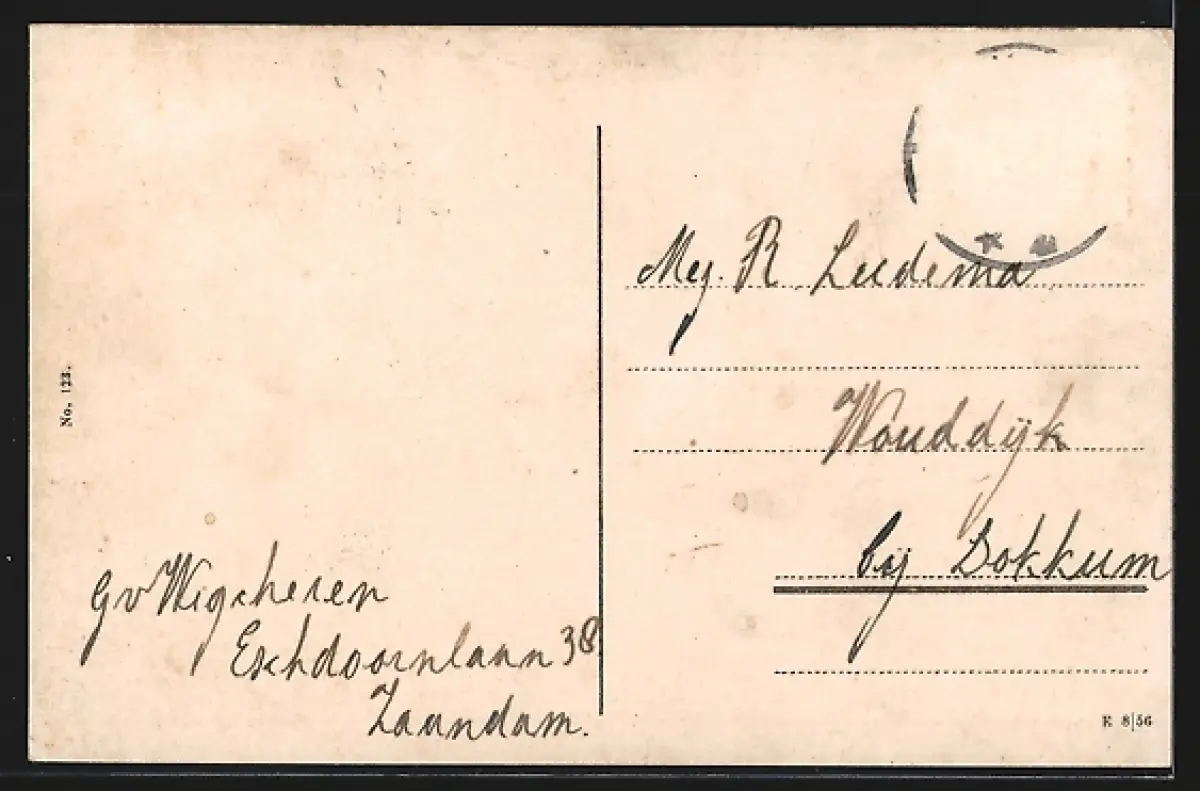 No. 123.
Mej. R. Ludema
Wouddijk
bij Dokkum
G v Wigcheren
Eschdoornlaan 38
Zaandam.
E 8|56